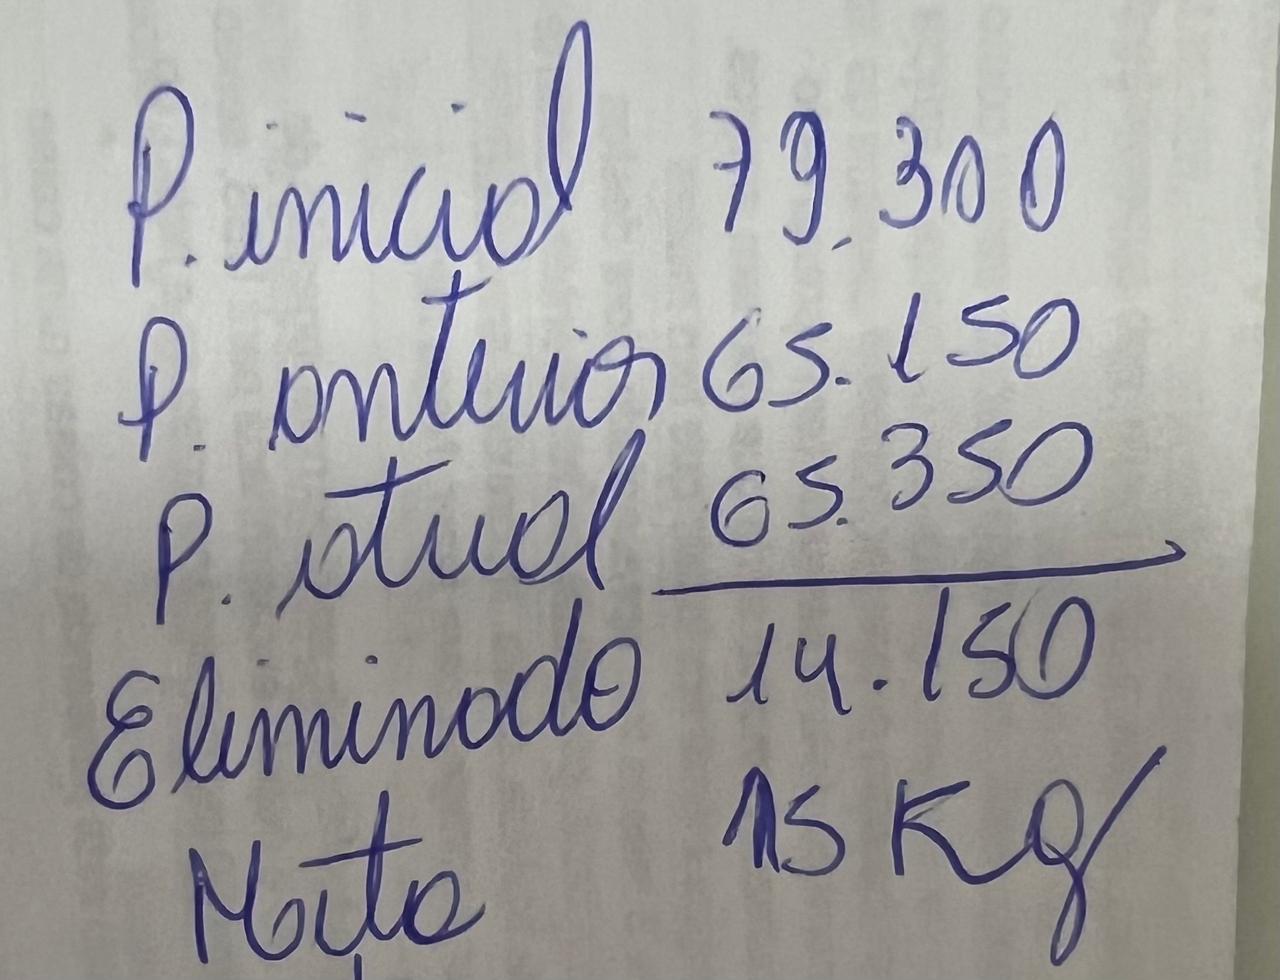 P. inicial 79.300
P. anterior 65.150
P. atual 65.350
Eliminado 14.150
Meta 15 Kg